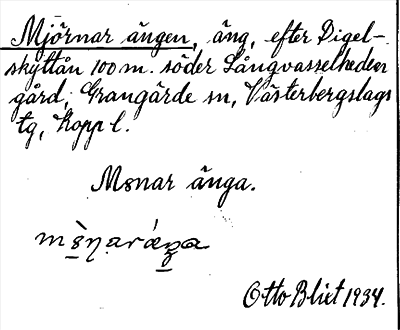 Mjörnar ängen, äng, efter Digel-
skyttån 100 m. söder Långvasselheden
gård, Grangärde sn, Västerbergslags
tg, Kopp l.
Mønar änga.
Otto Blixt 1934.